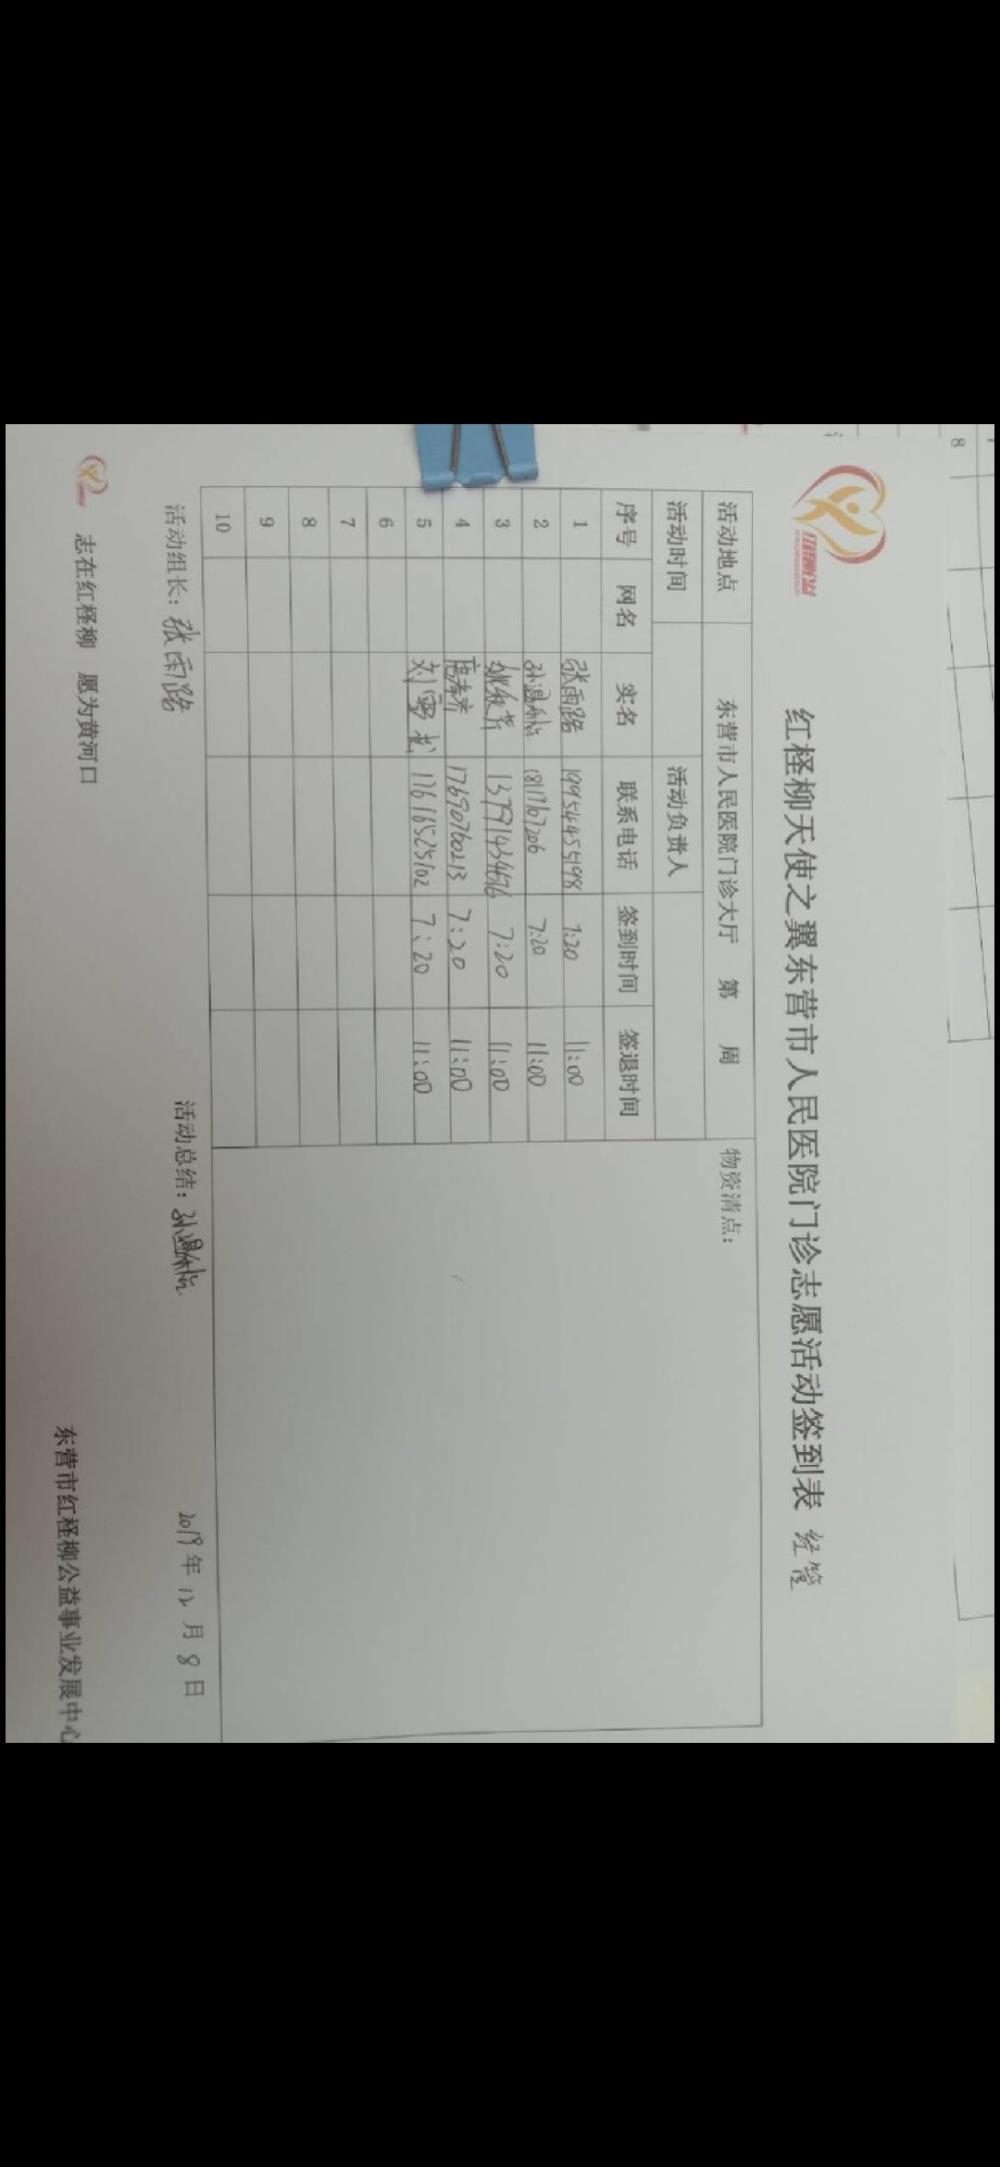 红柽柳天使之翼东营市人民医院门诊志愿活动签到表 经管
活动地点 东营市人民医院门诊大厅 第 周 物资清点：
活动时间 活动负责人
序号 网名 实名 联系电话 签到时间 签退时间
1 张雨路 19954455198 7:20 11:00
2 7:20 11:00
3 13791434676 7:20 11:00
4 17690760213 7:20 11:00
5 17616525102 7:20 11:00
6
7
8
9
10
活动组长：张雨路 活动总结： 2019年12月8日
志在红柽柳 愿为黄河口
东营市红柽柳公益事业发展中心
8